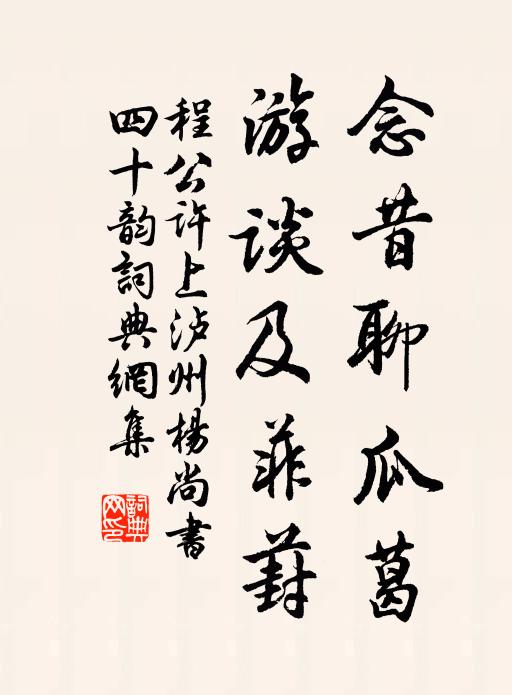 念昔聊瓜葛
游谈及菲葑
程公许上泸州杨尚书
四十韵詞典網集
詞典
网印